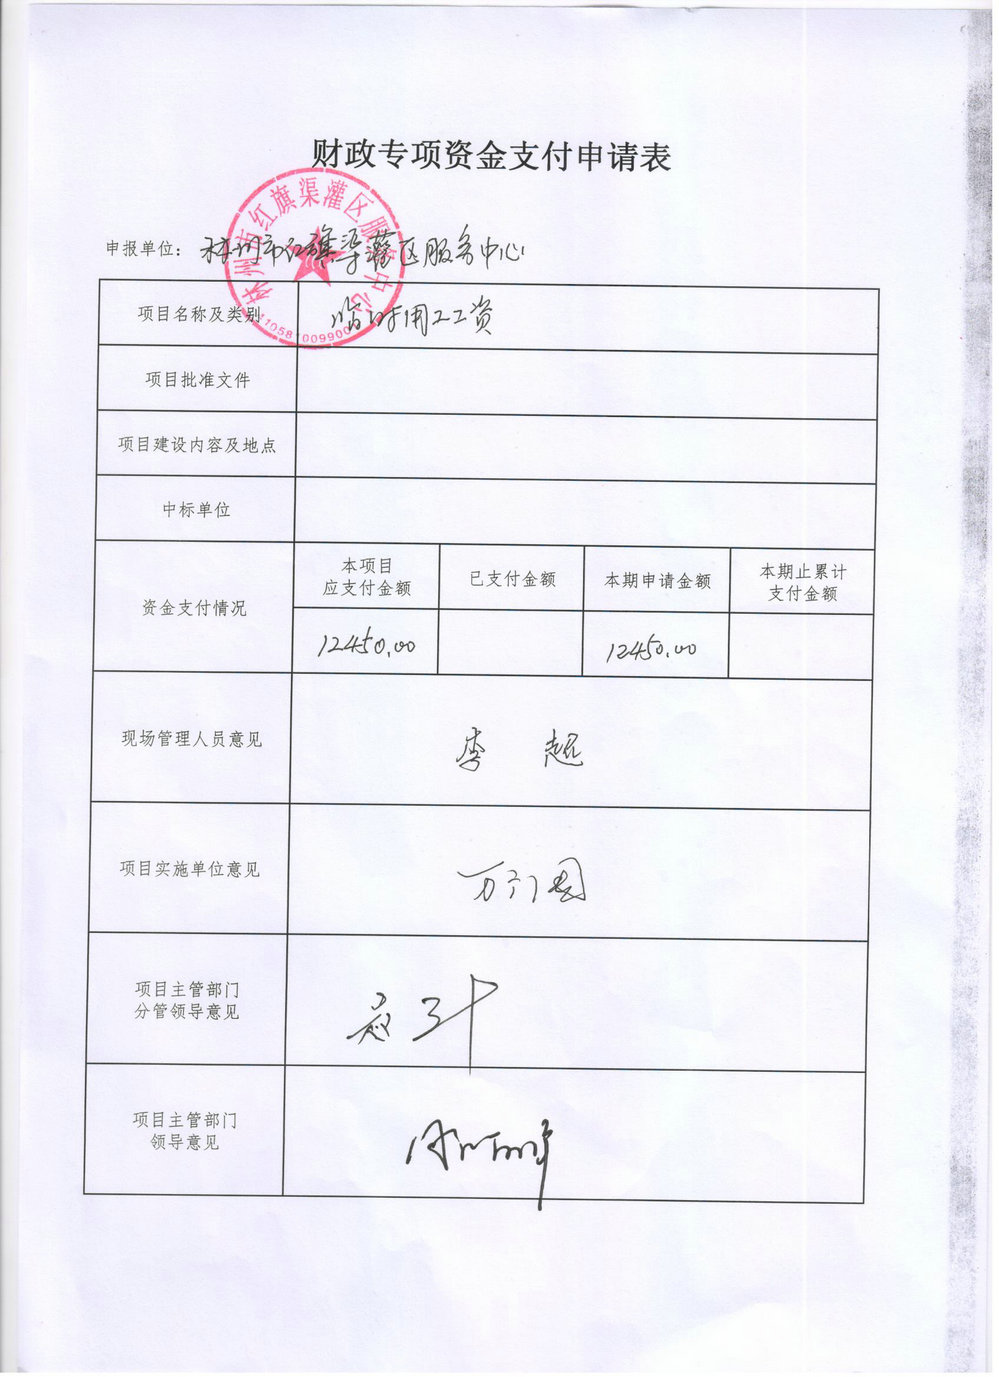 财政专项资金支付申请表
林州市红旗渠灌区服务中心
申报单位：林州市红旗渠灌区服务中心
项目名称及类别 临时用工工资
项目批准文件
项目建设内容及地点
中标单位
资金支付情况
本项目
应支付金额
已支付金额
本期申请金额
本期止累计
支付金额
12450.00
12450.00
现场管理人员意见 李超
项目实施单位意见
项目主管部门
分管领导意见
项目主管部门
领导意见